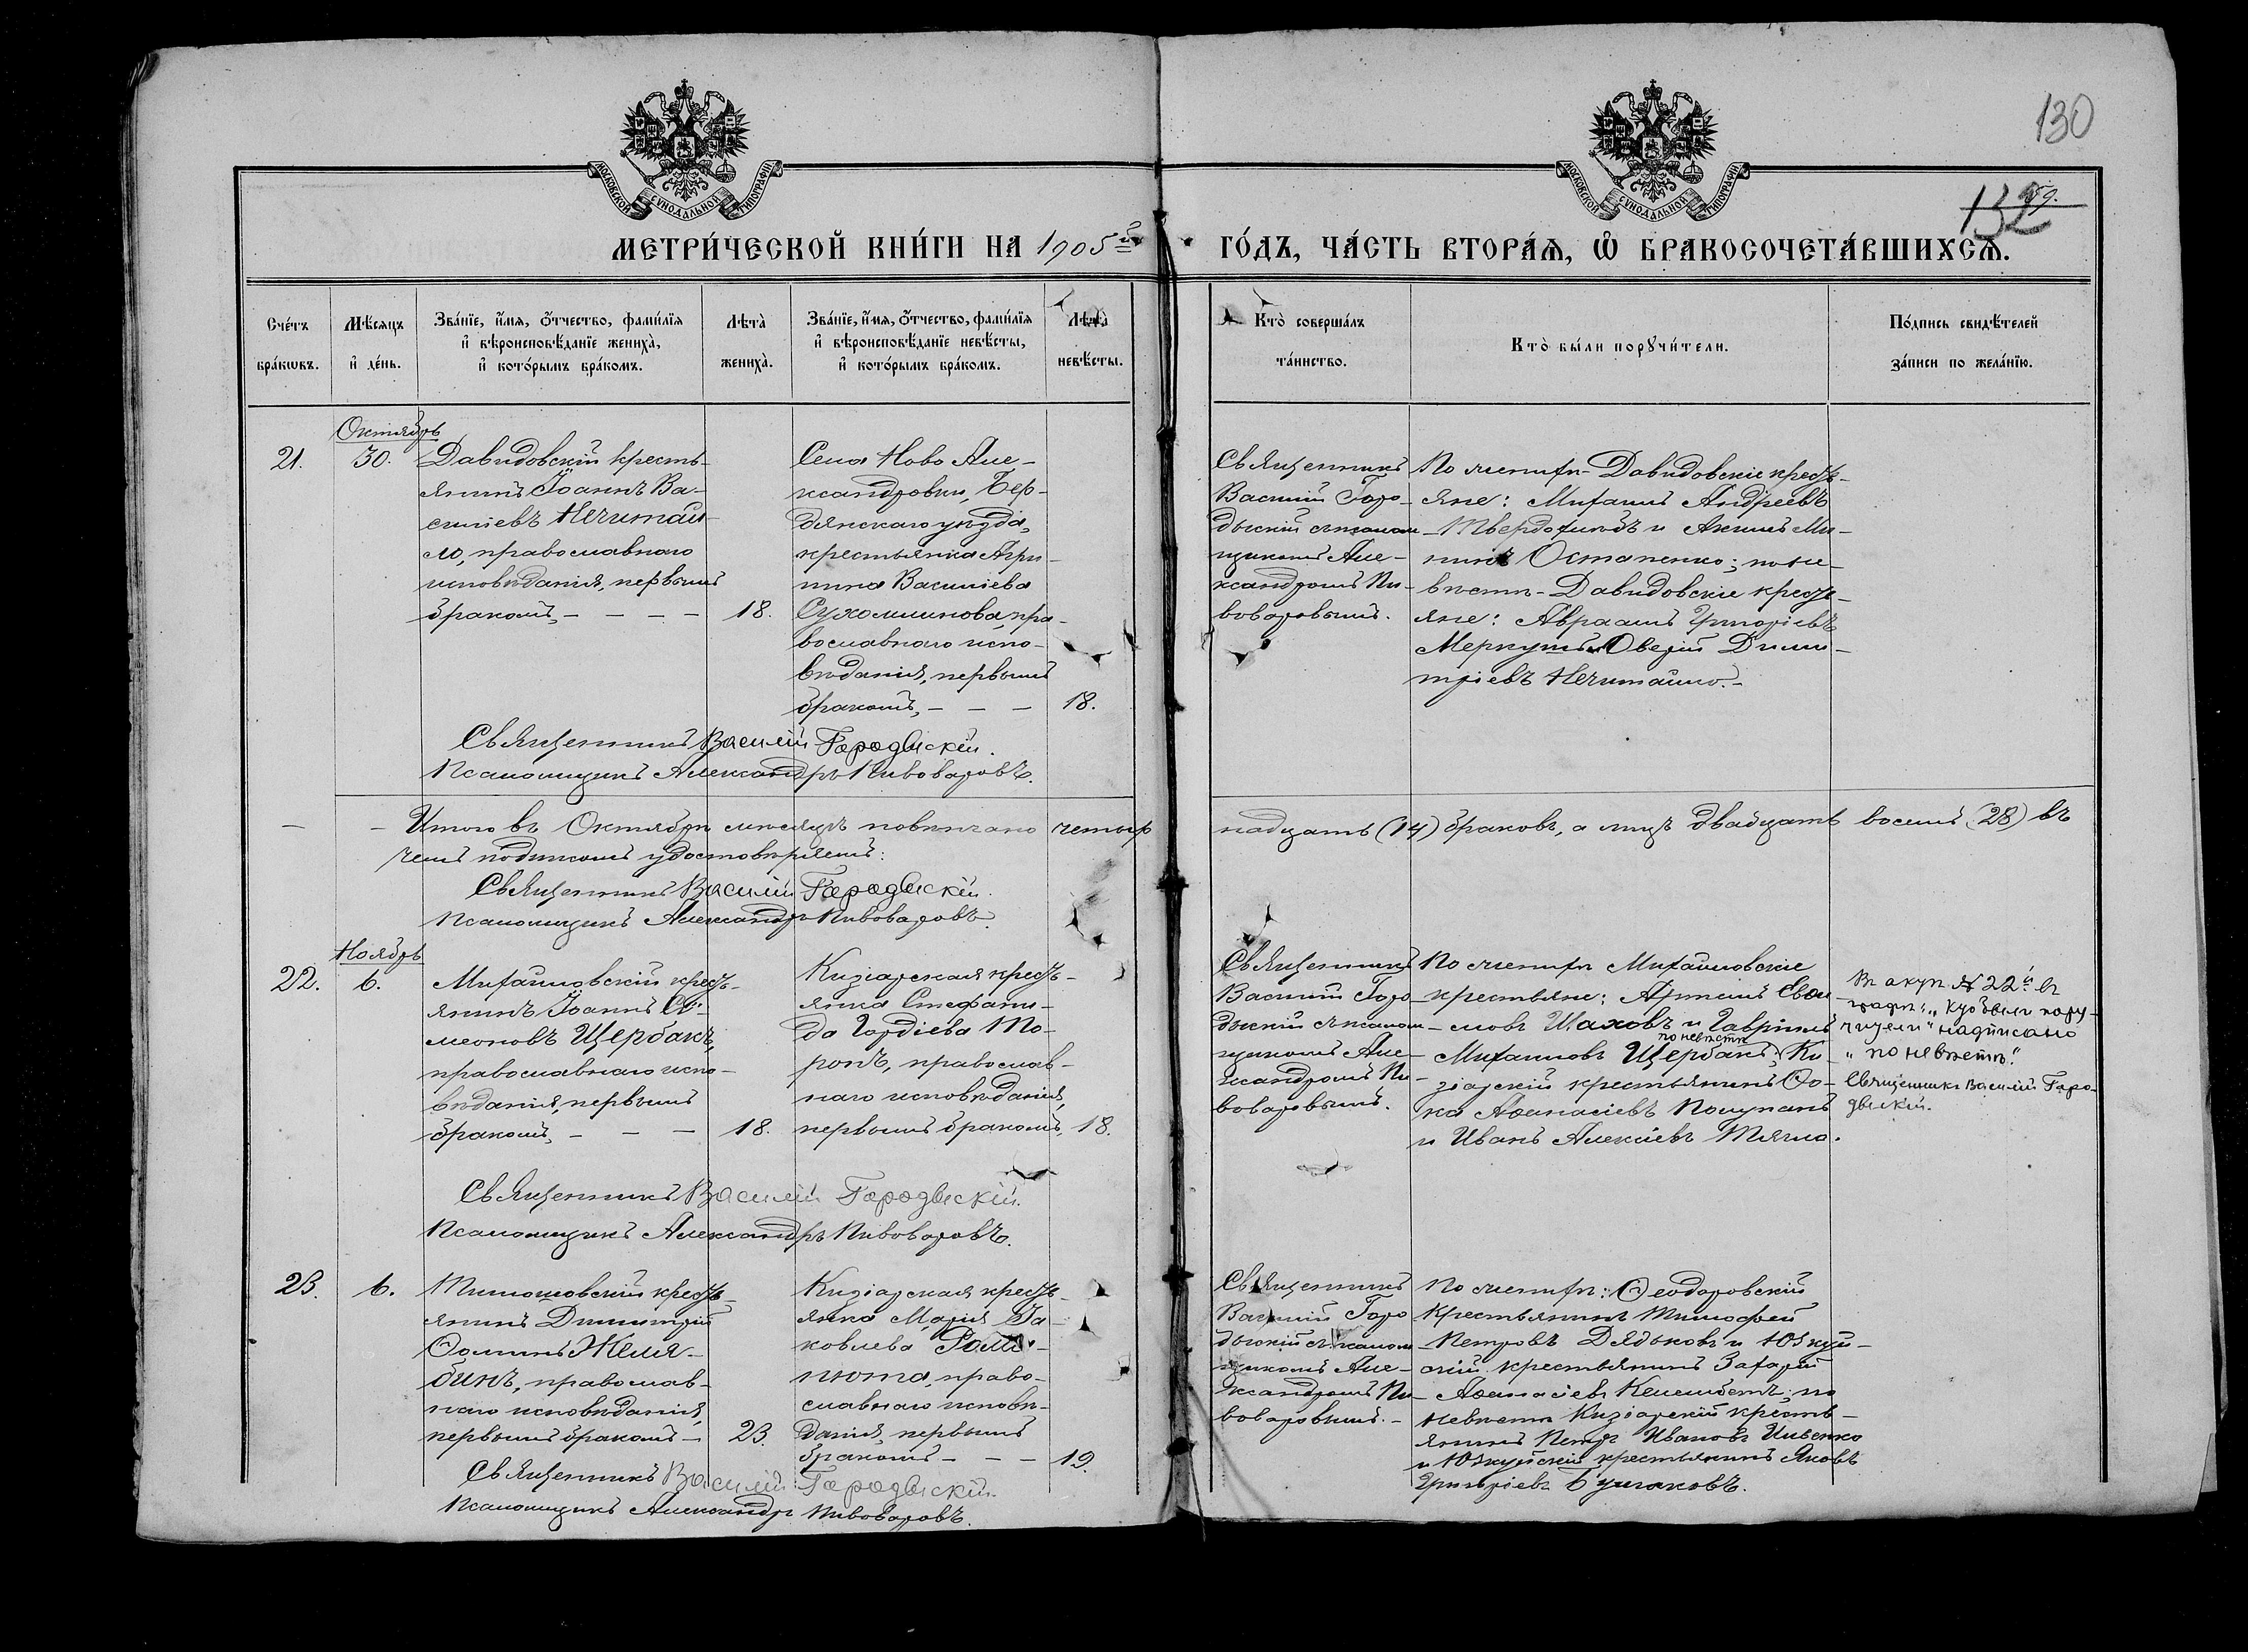 130
159.
132
МОСКОВСКОЙ СУНОДАЛЬНОЙ ТИПОГРАФІИ
МОСКОВСКОЙ СУНОДАЛЬНОЙ ТИПОГРАФІИ
МЕТРИ́ЧЕСКОЙ КНИ́ГИ НА 1905й
ГО́ДЪ, ЧА́СТЬ ВТОРА́Ѧ, Ѡ҆ БРАКОСОЧЕТА́ВШИХСѦ.
Сче́тъ бра́кωвъ.
Мѣ́сѧцъ и҆ де́нь.
Зва́нїе, и҆́мѧ, ѻ҆́тчество, фами́лїѧ и҆ вѣроисповѣ́данїе жениха̀, и҆ кото́рымъ бра́комъ.
Лѣта̀ жениха̀.
Зва́нїе, и҆́мѧ, ѻ҆́тчество, фами́лїѧ и҆ вѣроисповѣ́данїе невѣ́сты, и҆ кото́рымъ бра́комъ.
Лѣта̀ невѣ́сты.
Кто̀ соверша́лъ та́инство.
Кто̀ бы́ли порꙋчи́тели.
По́дпись свидѣ́телей за́писи по жела́нїю.
Октябрь
21.
30.
Давидовскій кресть-
янинъ Іоаннъ Ва-
силіевъ Нечитай-
ло, православнаго
исповѣданія, первымъ
бракомъ, – – – –
18.
Села Ново Але-
ксандровки, Бер-
дянскаго уѣзда,
крестьянка Агри-
пина Василіева
Сухомлинова, пра-
вославнаго испо-
вѣданія, первымъ
бракомъ, – – –
18.
Священникъ
Василій Горо-
дыскій съ псалом-
щикомъ Але-
ксандромъ Пи-
воваровымъ.
По женихѣ – Давидовскіе кресть-
яне: Михаилъ Андреевъ
Твердохлѣбъ и Акимъ Ми-
нинъ Остапенко; по не-
вѣстѣ – Давидовскіе кресть-
яне: Авраамъ Григоріевъ
Меркутъ и Овсѣй Дими-
тріевъ Нечитайло. –
Священникъ Василій Городыскій.
Псаломщикъ Александръ Пивоваровъ.
– – Итого въ Октябрѣ мѣсяцѣ повѣнчано четыр
надцать (14) браковъ, а лицъ двадцать восемь (28) въ
чемъ подписомъ удостовѣряемъ:
Священникъ Василій Городыскій.
Псаломщикъ Александръ Пивоваровъ.
Ноябрь
22.
6.
Михайловскій кресть-
янинъ Іоаннъ Си-
меоновъ Щербакъ,
православнаго испо-
вѣданія, первымъ
бракомъ, – – –
18.
Кизіарская кресть-
янка Стефани-
да Гордіева Мо-
ронъ, православ-
наго исповѣданія,
первымъ бракомъ,
18.
Священникъ
Василій Горо-
дыскій съ псалом-
щикомъ Але-
ксандромъ Пи-
воваровымъ.
По женихѣ Михайловскіе
крестьяне: Артемъ
Шаховъ и Гавріилъ
по невѣстѣ
Михаиловъ Щербакъ; Ки-
зіарскій крестьянинъ Ѳо-
ка Аѳанасіевъ Полупанъ
и Иванъ Алексіевъ Тягло.
Въ актѣ № 22й въ
графѣ: „Кто были пору-
чители“ надписано
„по невѣстѣ“.
Священникъ Василій Горо-
дыскій.
Священникъ Василій Городыскій.
Псаломщикъ Александръ Пивоваровъ.
23.
6.
Тимошовскій кресть-
янинъ Димитрій
Ѳоминъ Желя-
бинъ, православ-
наго исповѣданія,
первымъ бракомъ –
23.
Кизіарская кресть-
янка Марія Іа-
ковлева
православнаго исповѣ-
данія, первымъ
бракомъ – – –
19.
Священникъ
Василій Горо-
дыскій съ псалом-
щикомъ Але-
ксандромъ Пи-
воваровымъ. –
По женихѣ: Ѳеодоровскій
крестьянинъ Тимофей
Петровъ Дядьковъ и Юзкуй-
скій крестьянинъ Захарій
Аѳанасіевъ Келембетъ; по
невѣстѣ Кизіарскій кресть-
янинъ Петръ Ивановъ
и Юзкуйскій крестьянинъ Яковъ
Григоріевъ Бушаковъ.
Священникъ Василій Городыскій.
Псаломщикъ Александръ Пивоваровъ.